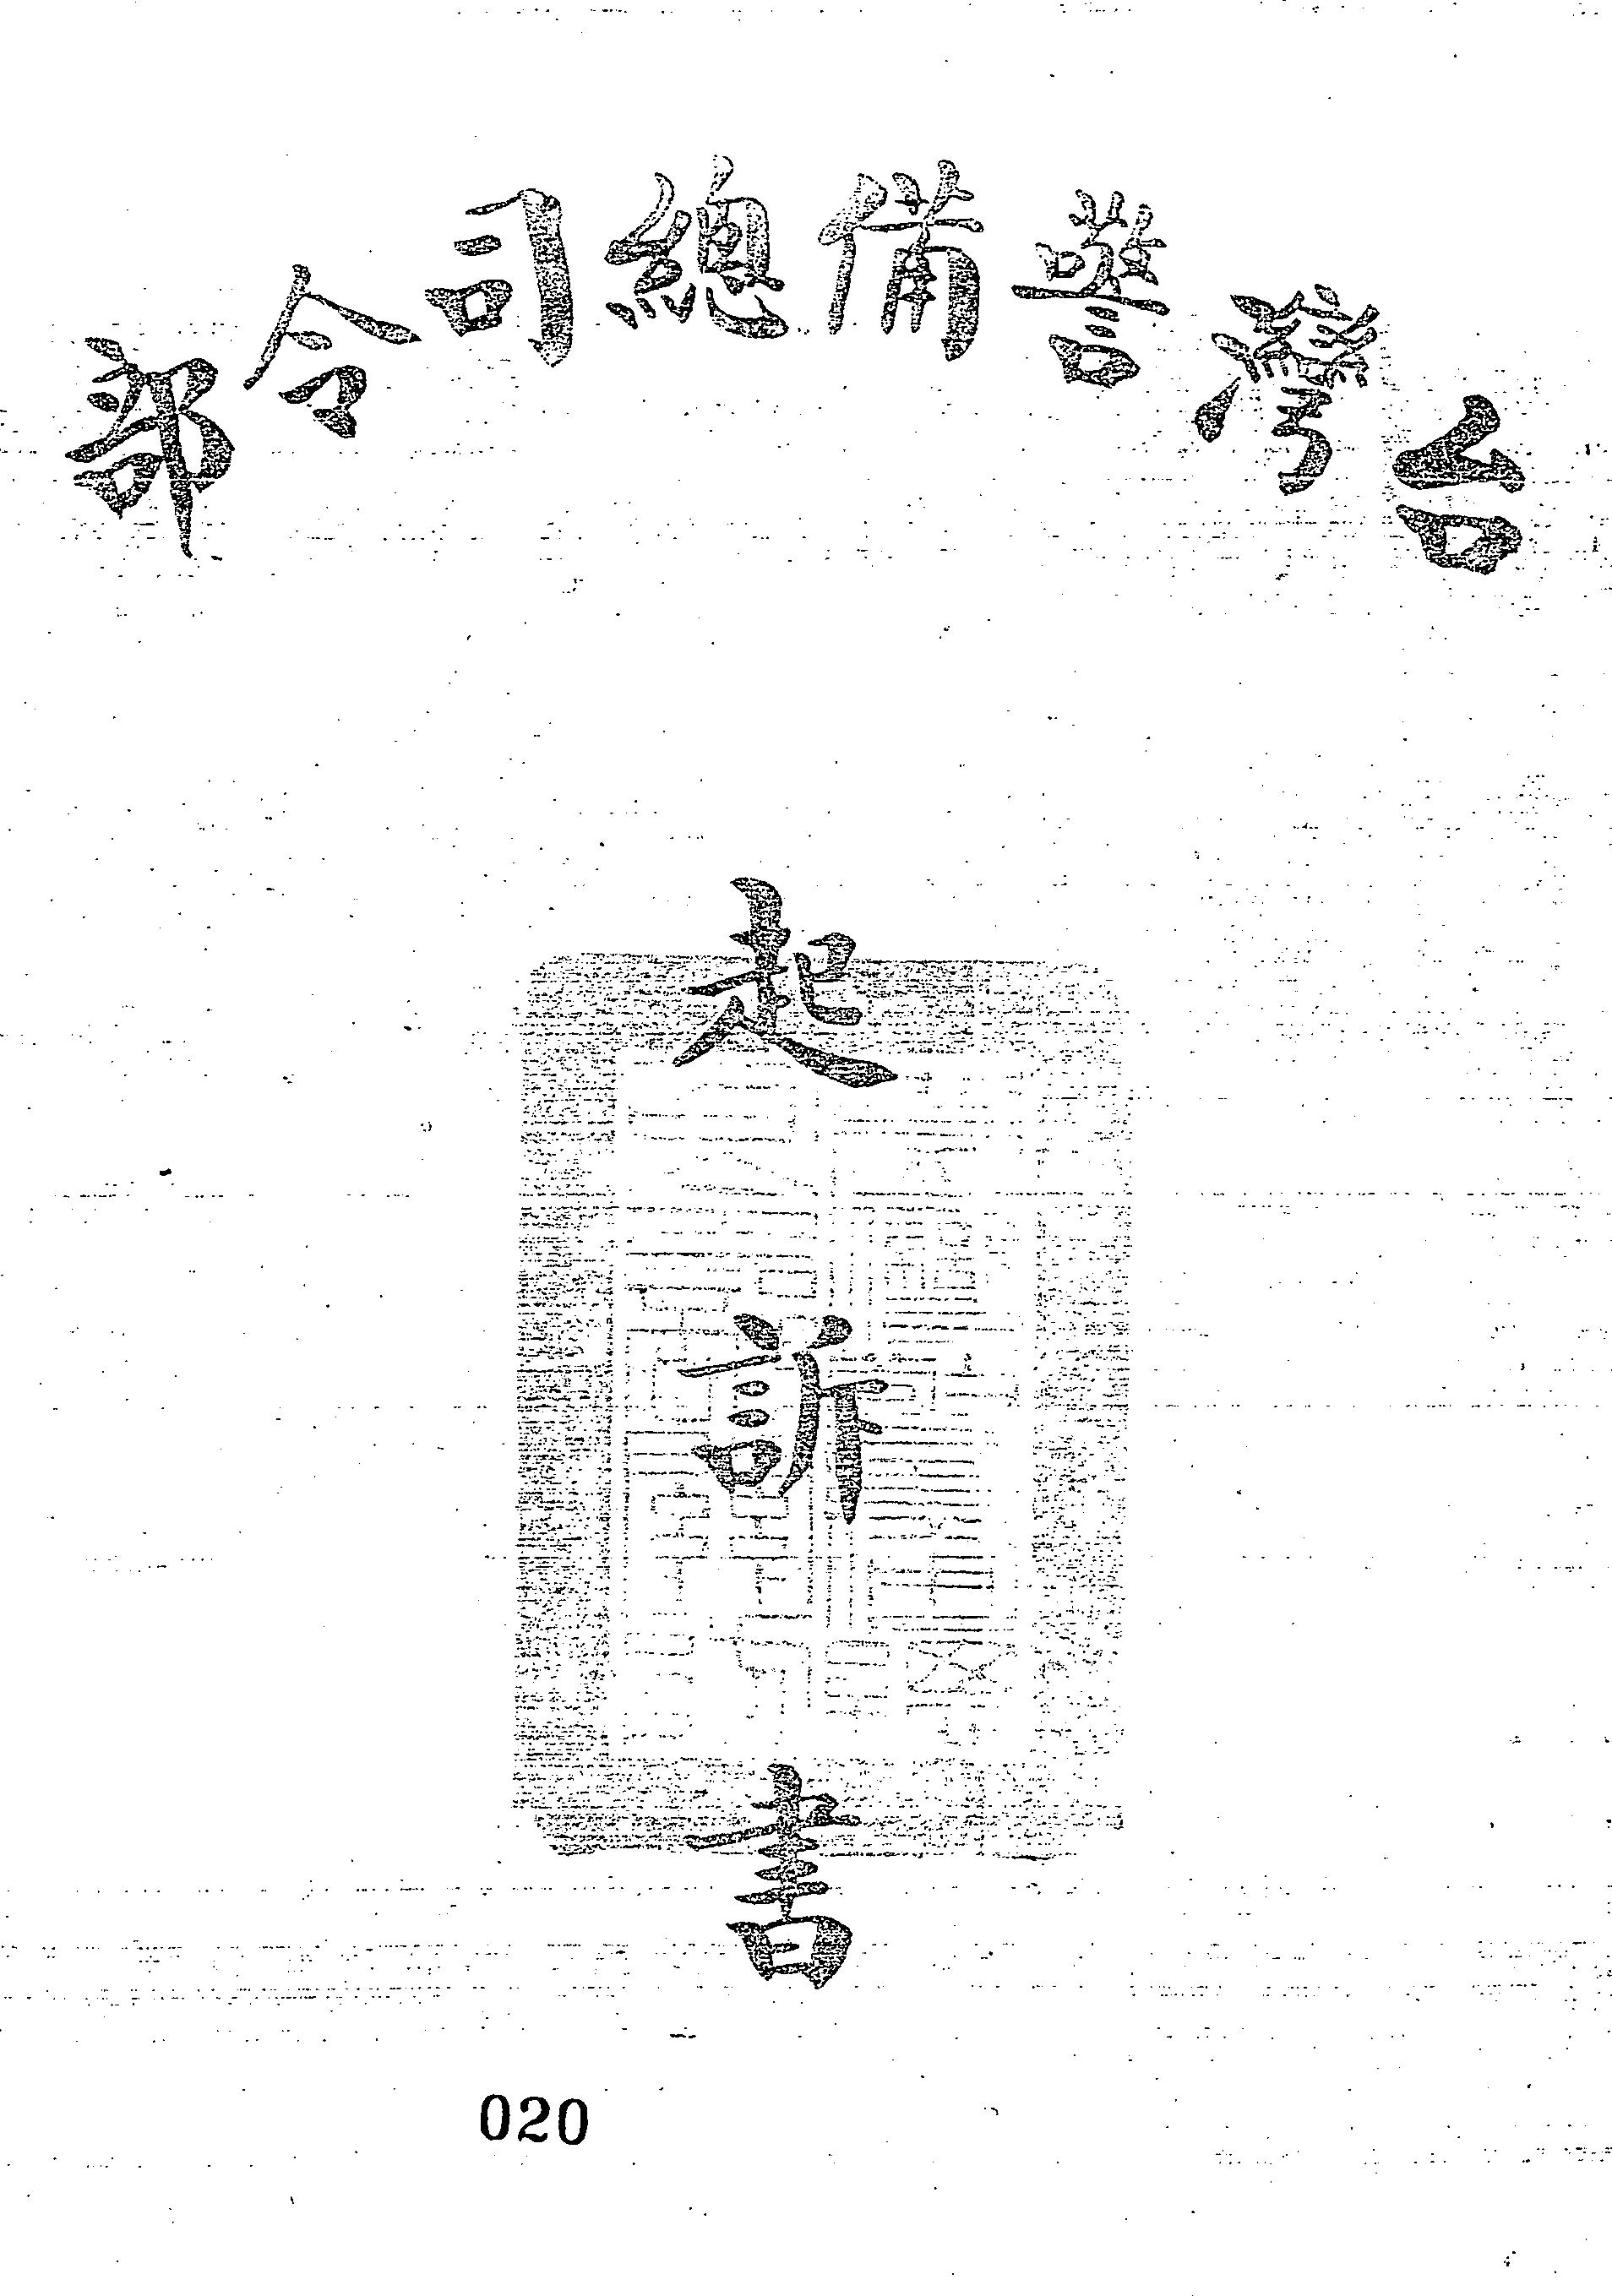 台灣警備總司令部
起訴書
020